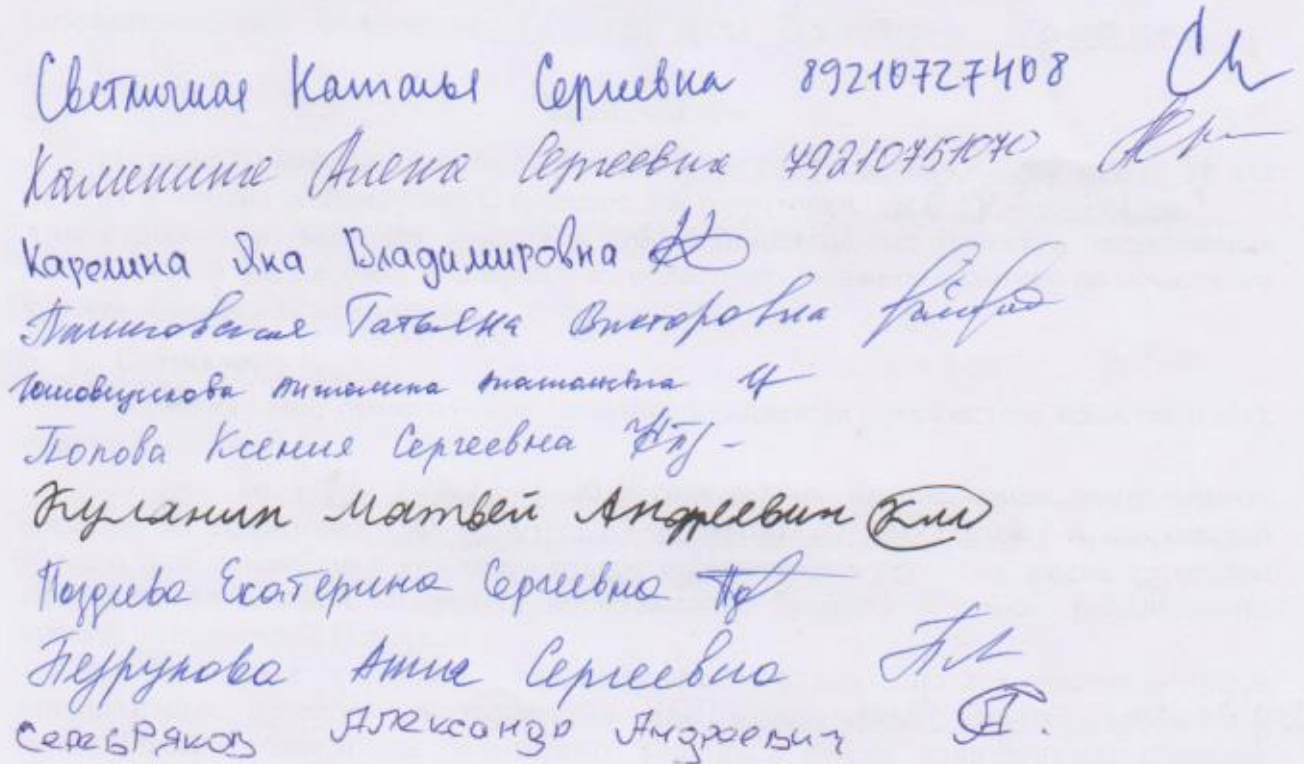 Светличная Наталья Сергеевна 89210727408
Каменина Алена Сергеевна 79210751070
Карелина Яна Владимировна
Татьяна Викторовна
Попова Ксения Сергеевна
Куланин Матвей Андреевич
Поздеева Екатерина Сергеевна
Анна Сергеевна
Серебряков Александр Андреевич